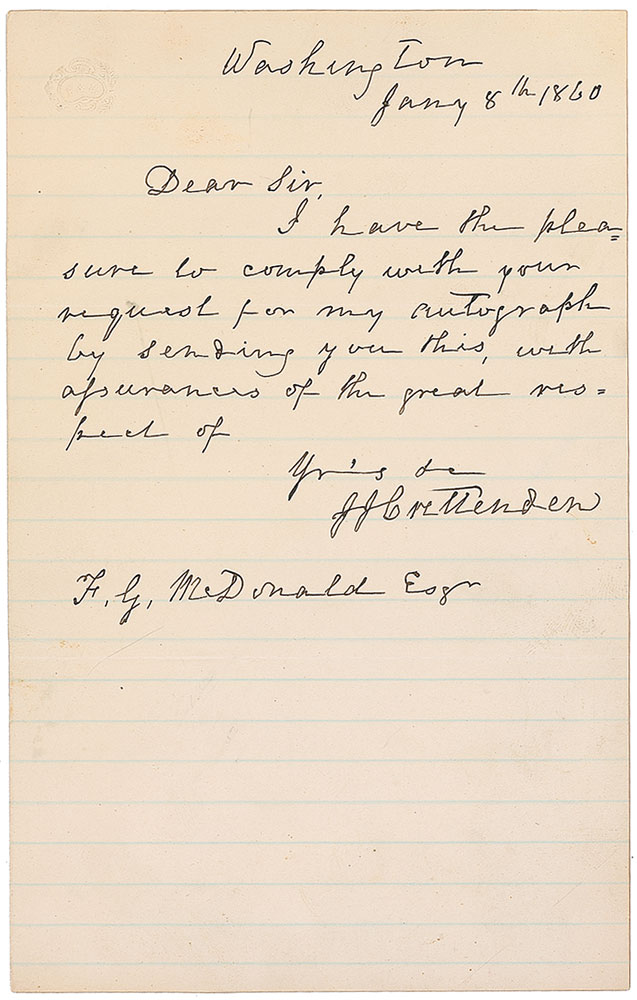 Washington
Jany 8th 1860
Dear Sir,
I have the plea=
sure to comply with your
request for my autograph
by sending you this, with
assurances of the great res=
pect of
Yr's &c
J J Crittenden
F. G. McDonald Esqr